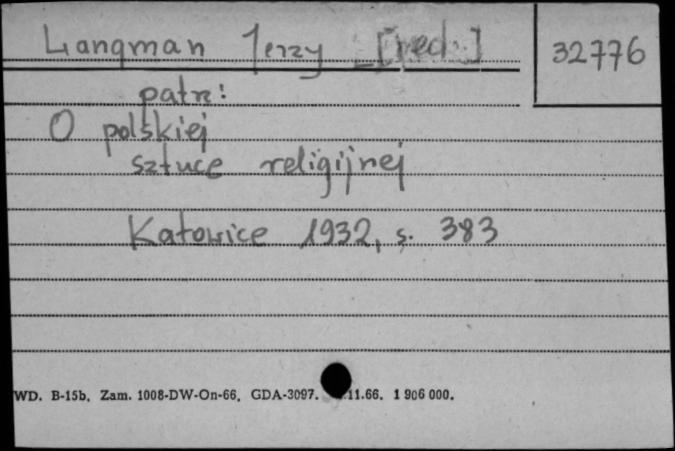 Langman Jerzy [red.]
32776
patrz:
O polskiej
sztuce religijnej
Katowice 1932, s. 383
WD. B-15b. Zam. 1008-DW-On-66. GDA-3097. .11.66. 1 906 000.